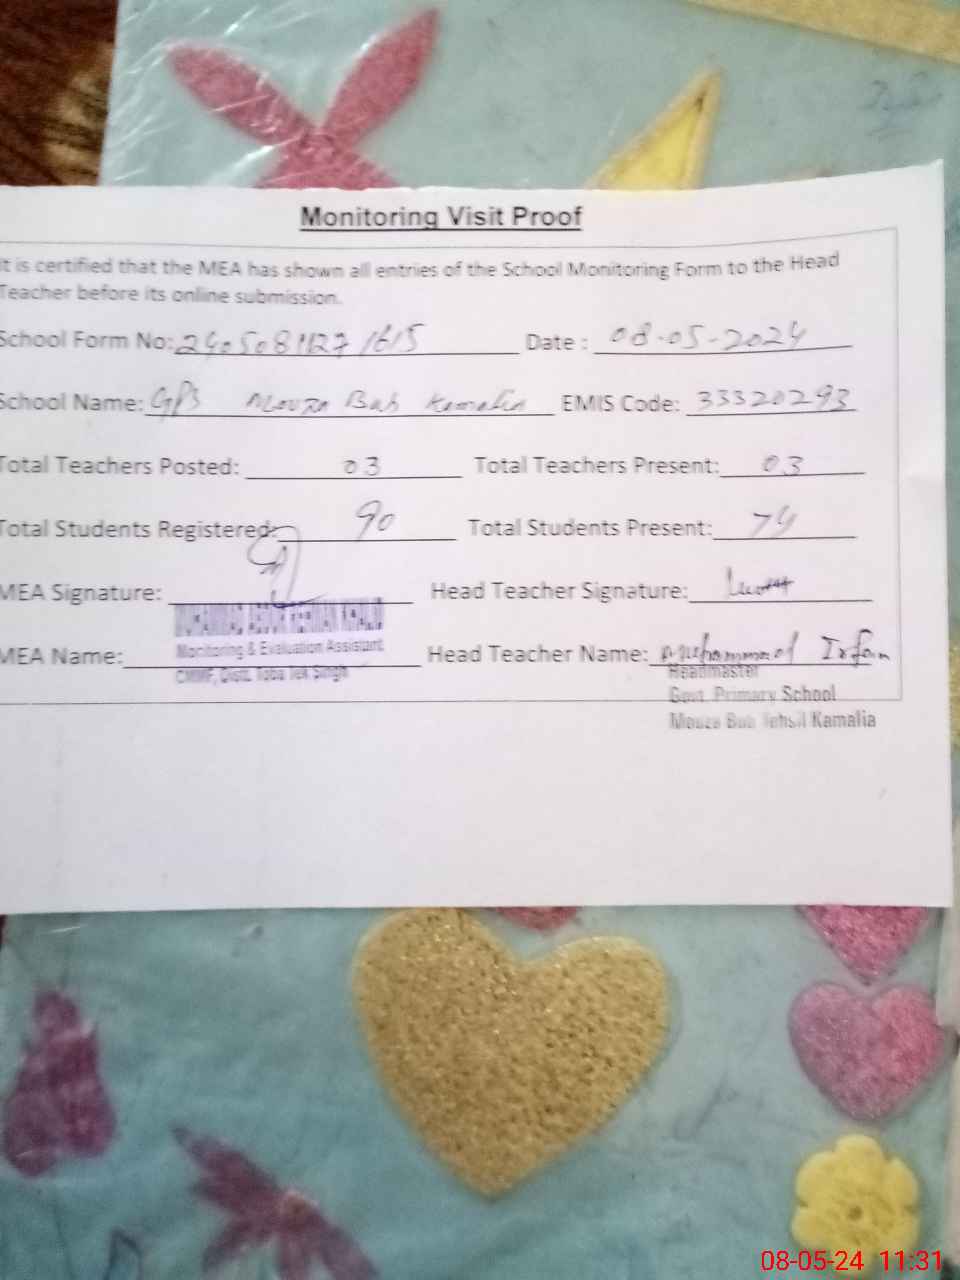 Monitoring Visit Proof
it is certified that the MEA has shown all entries of the School Monitoring Form to the Head
Teacher before its online submission.
School Form No: Date : 08-05-2024
School Name: GPS Mouza Bub Kamalia EMIS Code: 33320293
Total Teachers Posted: 03 Total Teachers Present: 03
Total Students Registered: 90 Total Students Present: 74
MEA Signature: Head Teacher Signature:
Monitoring & Evaluation Assistant
MEA Name: Head Teacher Name: Muhammad Irfan
CMMF, Distt. Toba Tek Singh
Headmaster
Govt. Primary School
Mouza Bub Tehsil Kamalia
08-05-24 11:31